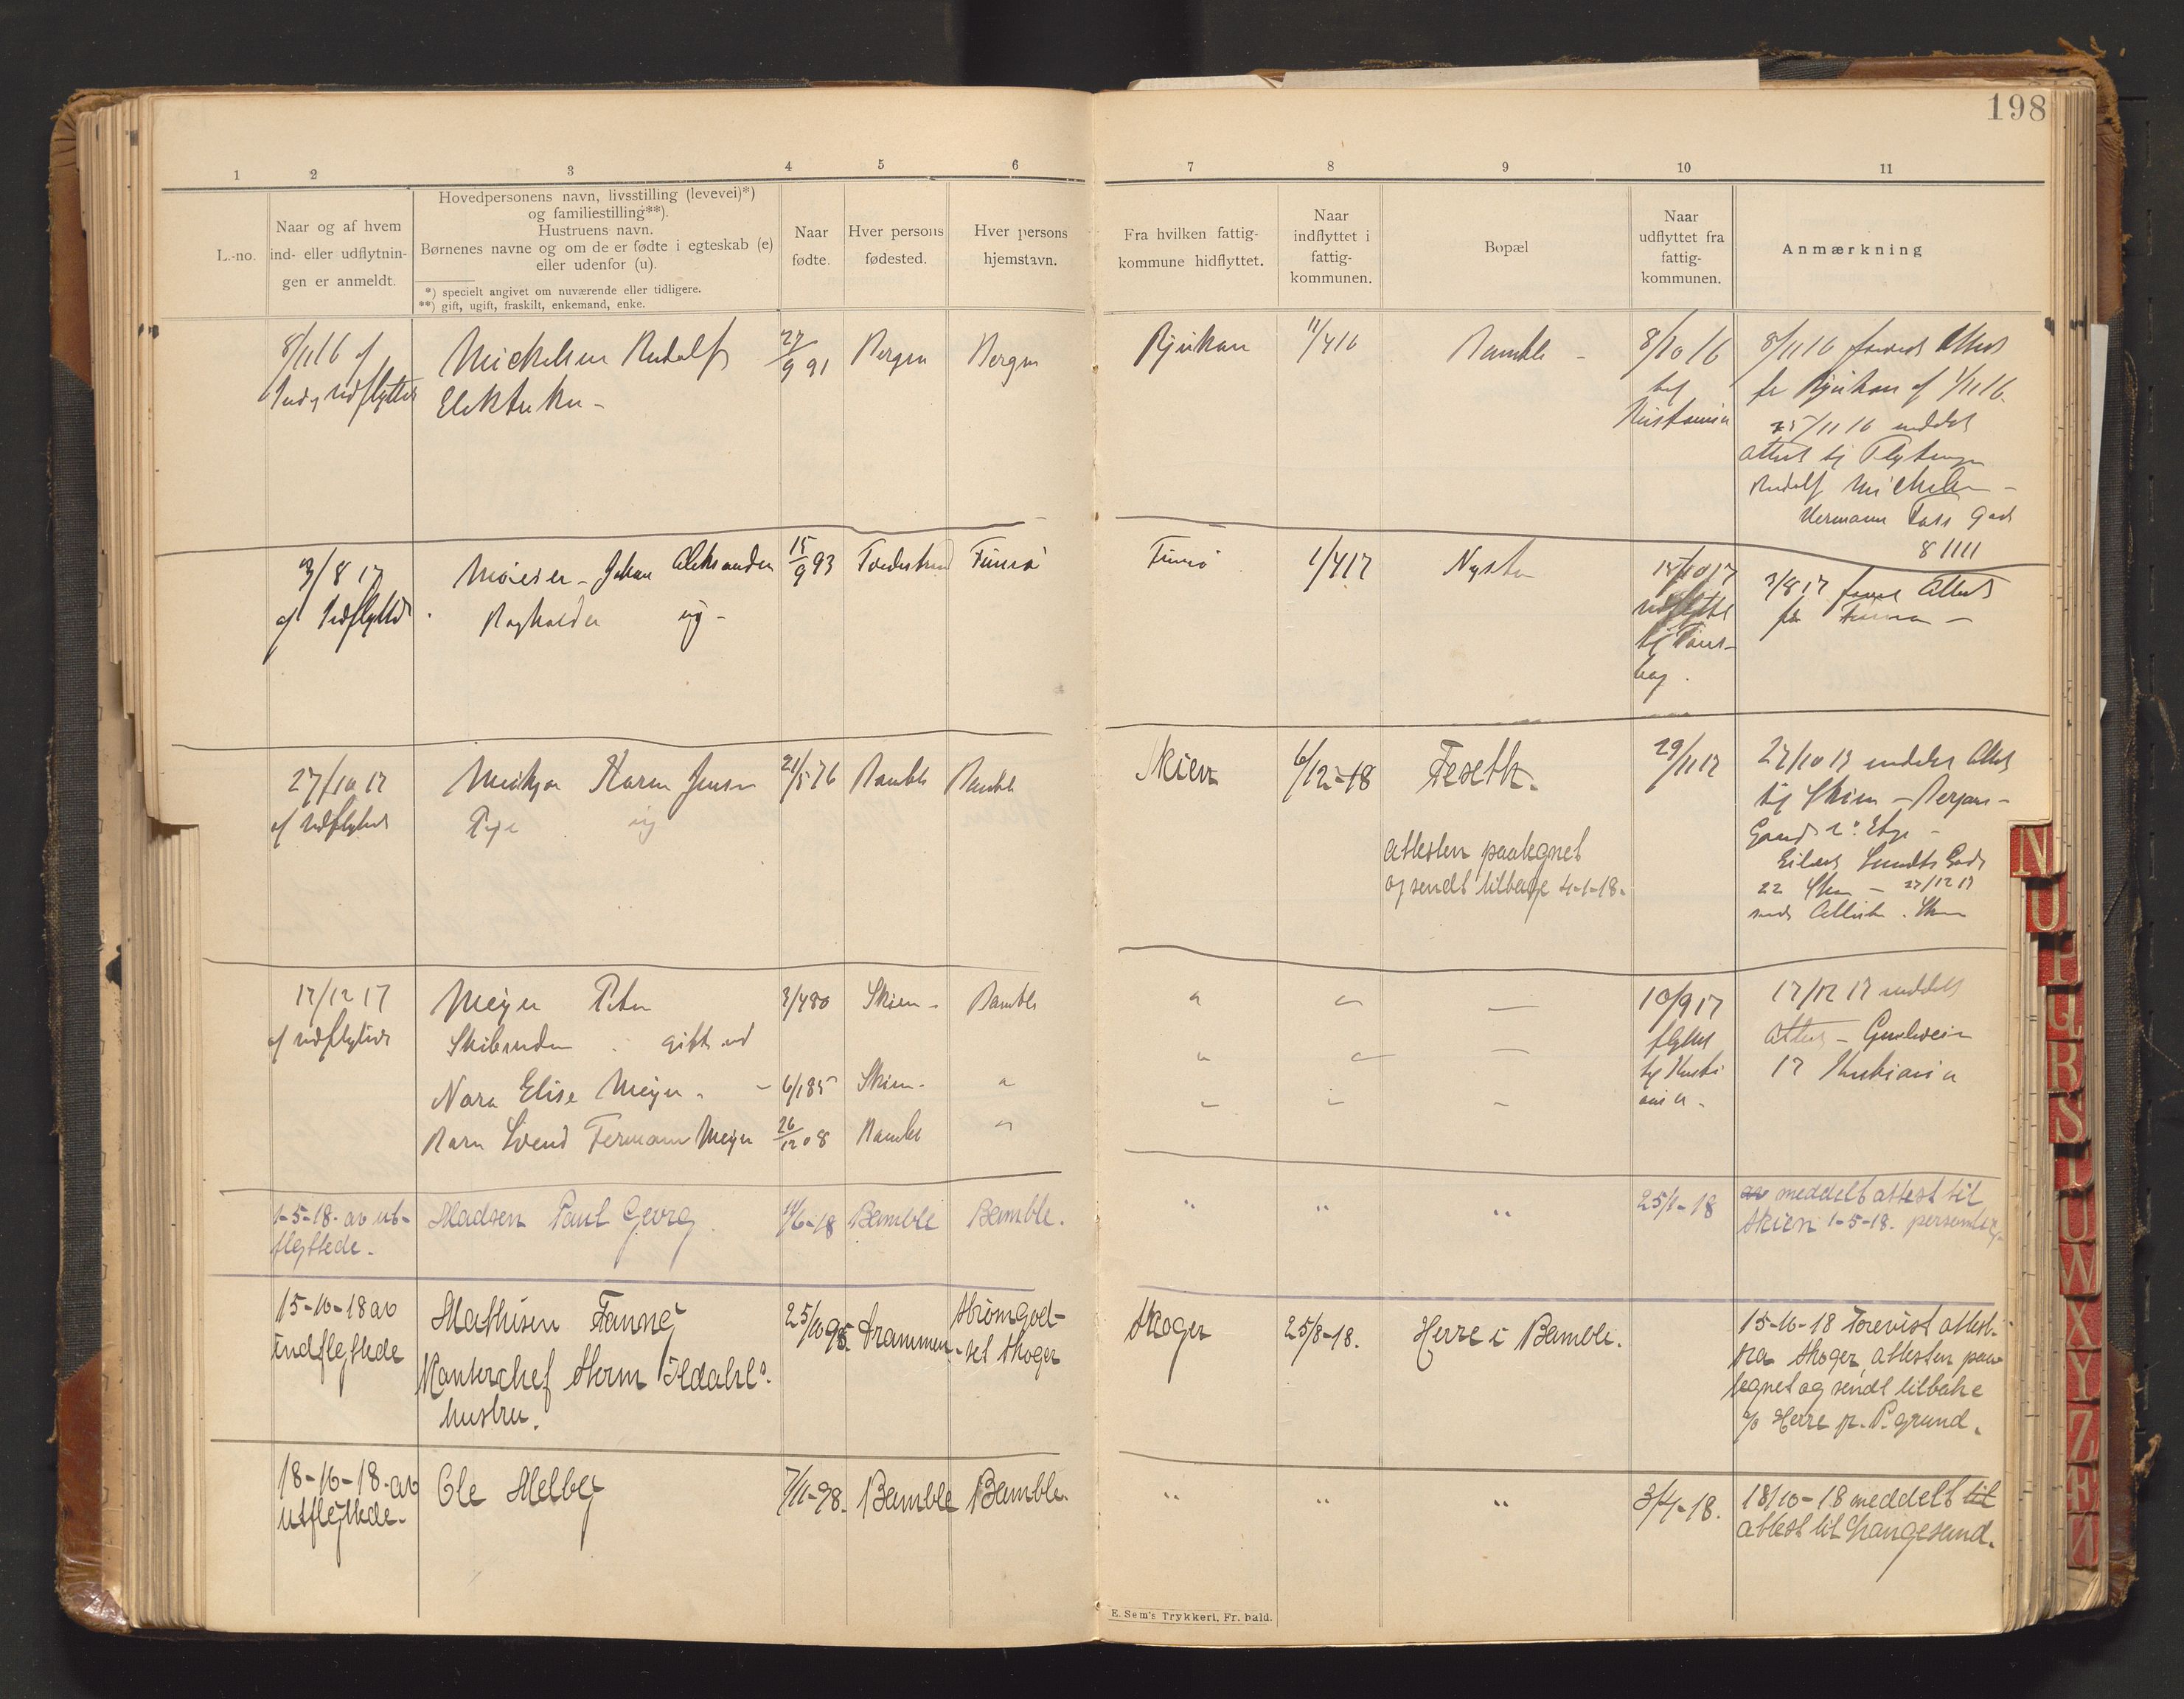 198
1 2 3 4 5 6 7 8 9 10 11
L.-no.
Naar og af hvem
ind- eller udflytnin-
gen er anmeldt.
Hovedpersonens navn, livsstilling (levevei)*)
og familiestilling**).
Hustruens navn.
Børnenes navne og om de er fødte i egteskab (e)
eller udenfor (u).
*) specielt angivet om nuværende eller tidligere.
**) gift, ugift, fraskilt, enkemand, enke.
Naar
fødte.
Hver persons
fødested.
Hver persons
hjemstavn.
Fra hvilken fattig-
kommune hidflyttet.
Naar
indflyttet i
fattig-
kommunen.
Bopæl
Naar
udflyttet fra
fattig-
kommunen.
Anmærkning
8/11 16 af
Ind og udflyttede
Mickelsen Rudolf
Elektriker -
27/9 91
Bergen
Bergen
Rjukan
11/4 16
Bamble -
8/10 16
til
Kristiania
8/11 16 forevist Attest
fra Rjukan af 1/11 16
25/11 16 meddelt
Attest til
Rudolf Mickelsen -
Hermann Foss Gade
8 IIII
3/8 17
af Indflyttede
Møeier - Johan Aleksander
Bogholder ug -
15/9 93
Tvedestrand
Furnö
1/4 17
Nystu
15/10 17
udflyttet
til Tøns-
berg.
3/8 17 forevist Attest
fra
27/10 17
af udflyttede
Karen Jensen
Pige ug
21/5 76
Bamble
Bamble
Skien
6/12-18
Feseth.
attesten paategnet
og sendt tilbage 4-1-18.
29/11 17
27/10 17 meddelt Attest
til Skien -
Gaard 2: Etg -
Eilert Sundts Gade
22 Skien - 27/12 17
sendt Attest Skien
17/12 17
af udflyttede
Meyer Peter
Skibsreder . gift ved
Nora Elise Meyer. -
Barn Svend Fermann Meyer
3/4 80
6/1 85
26/12 08
Skien -
Skien -
Bamble
Bamble
"
"
10/9 17
flyttet
til Kristi
ania -
17/12 17 meddelt
Attest -
17 Kristiania
1-5-18. av ut-
flyttede.
Madsen Paul Georg.
11/6-18
Bamble
Bamble.
" " "
25/1-18
av meddelt attest til
Skien 1-5-18. personlig.
15-10-18 av
indflyttede
Mathisen Fanny
Kontorchef Herm Ildahls
hustru.
25/10 95.
Drammen.
Strömgod-
set Skoger
Skoger
25/8-18.
Herre i Bamble.
15-10-18 Forevist attest
fra Skoger, attesten paa-
tegnet og sendt tilbake
p/o Herre pr. P.grund.
18-10-18. av
utflyttede.
Ole Melby
7/11-98.
Bamble
Bamble.
" " "
3/4-18.
18/10-18 meddelt til
attest til Langesund.
E. Sem's Trykkeri, Fr. hald.
N
U
P
Q
R
S
T
U
W
X
Y
Z
Æ
Ø